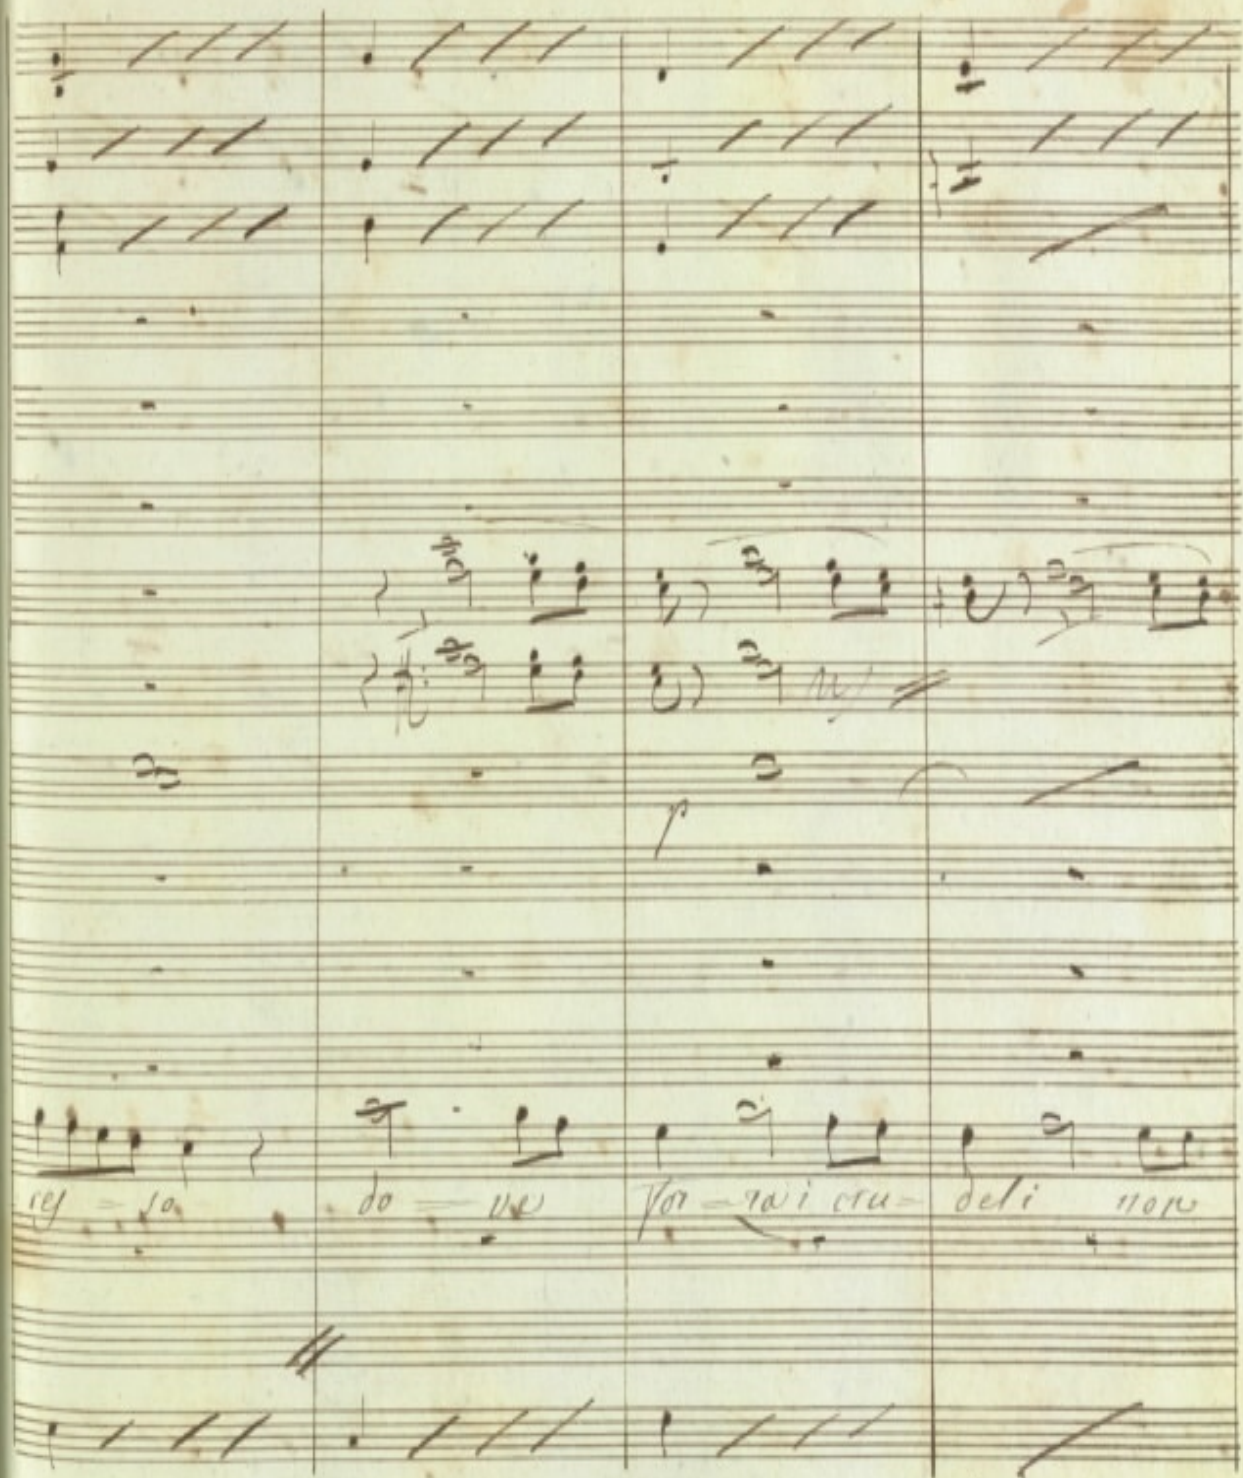 p
do = ve vor - rai cru - deli non